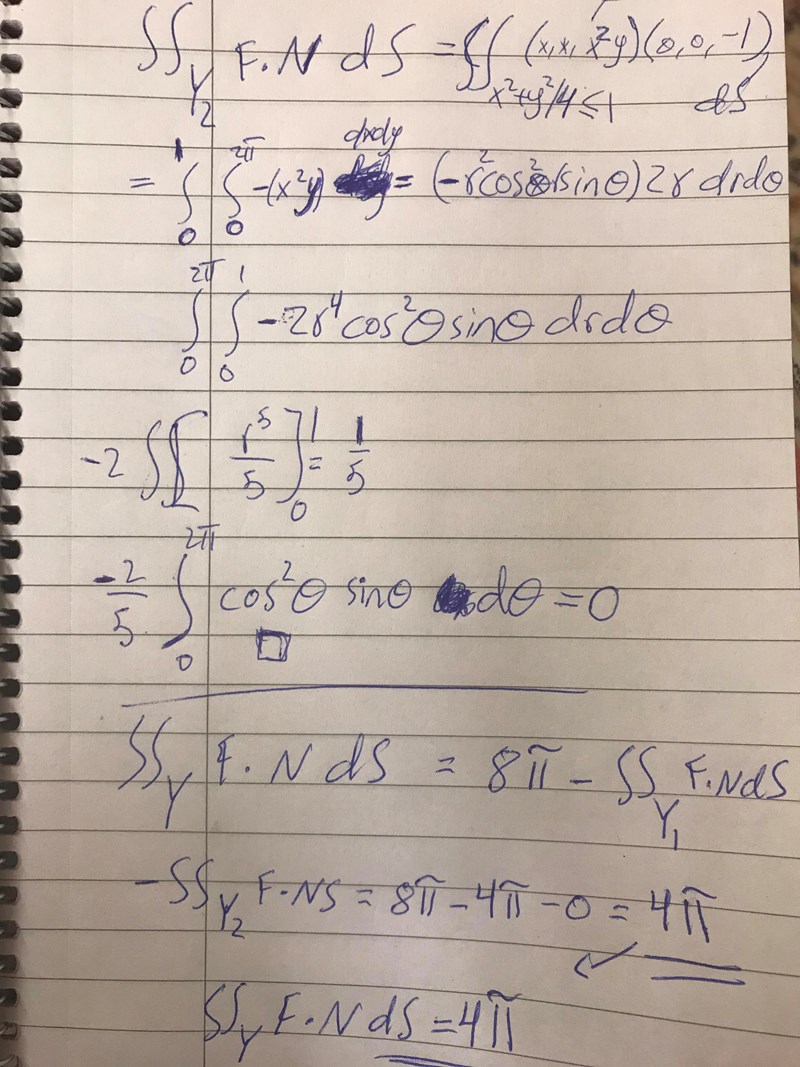 ∬_{Y₂} F·N dS = ∬_{x²+y²/4≤1} (x, x, x²y)(0, 0, -1) dS
= ∫₀¹ ∫₀^{2π} -(x²y) dxdy = (-r²cos²θ r sinθ) 2r drdθ
∫₀^{2π} ∫₀¹ -2r⁴ cos²θ sinθ drdθ
-2 ∬ [r⁵/5]₀¹ = 1/5
-2/5 ∫₀^{2π} cos²θ sinθ dθ = 0
□
∬_Y F·N dS = 8π - ∬_{Y₁} F·N dS
-∬_{Y₂} F·NS = 8π - 4π - 0 = 4π
✓
∬_Y F·N dS = 4π